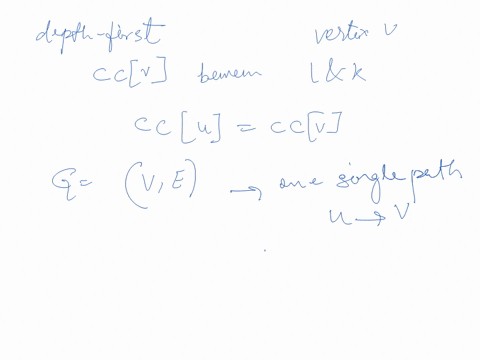 depth-first vertix v
CC[v] beween 1 & k
CC[u] = CC[v]
G = (V, E) → one single path
u → v